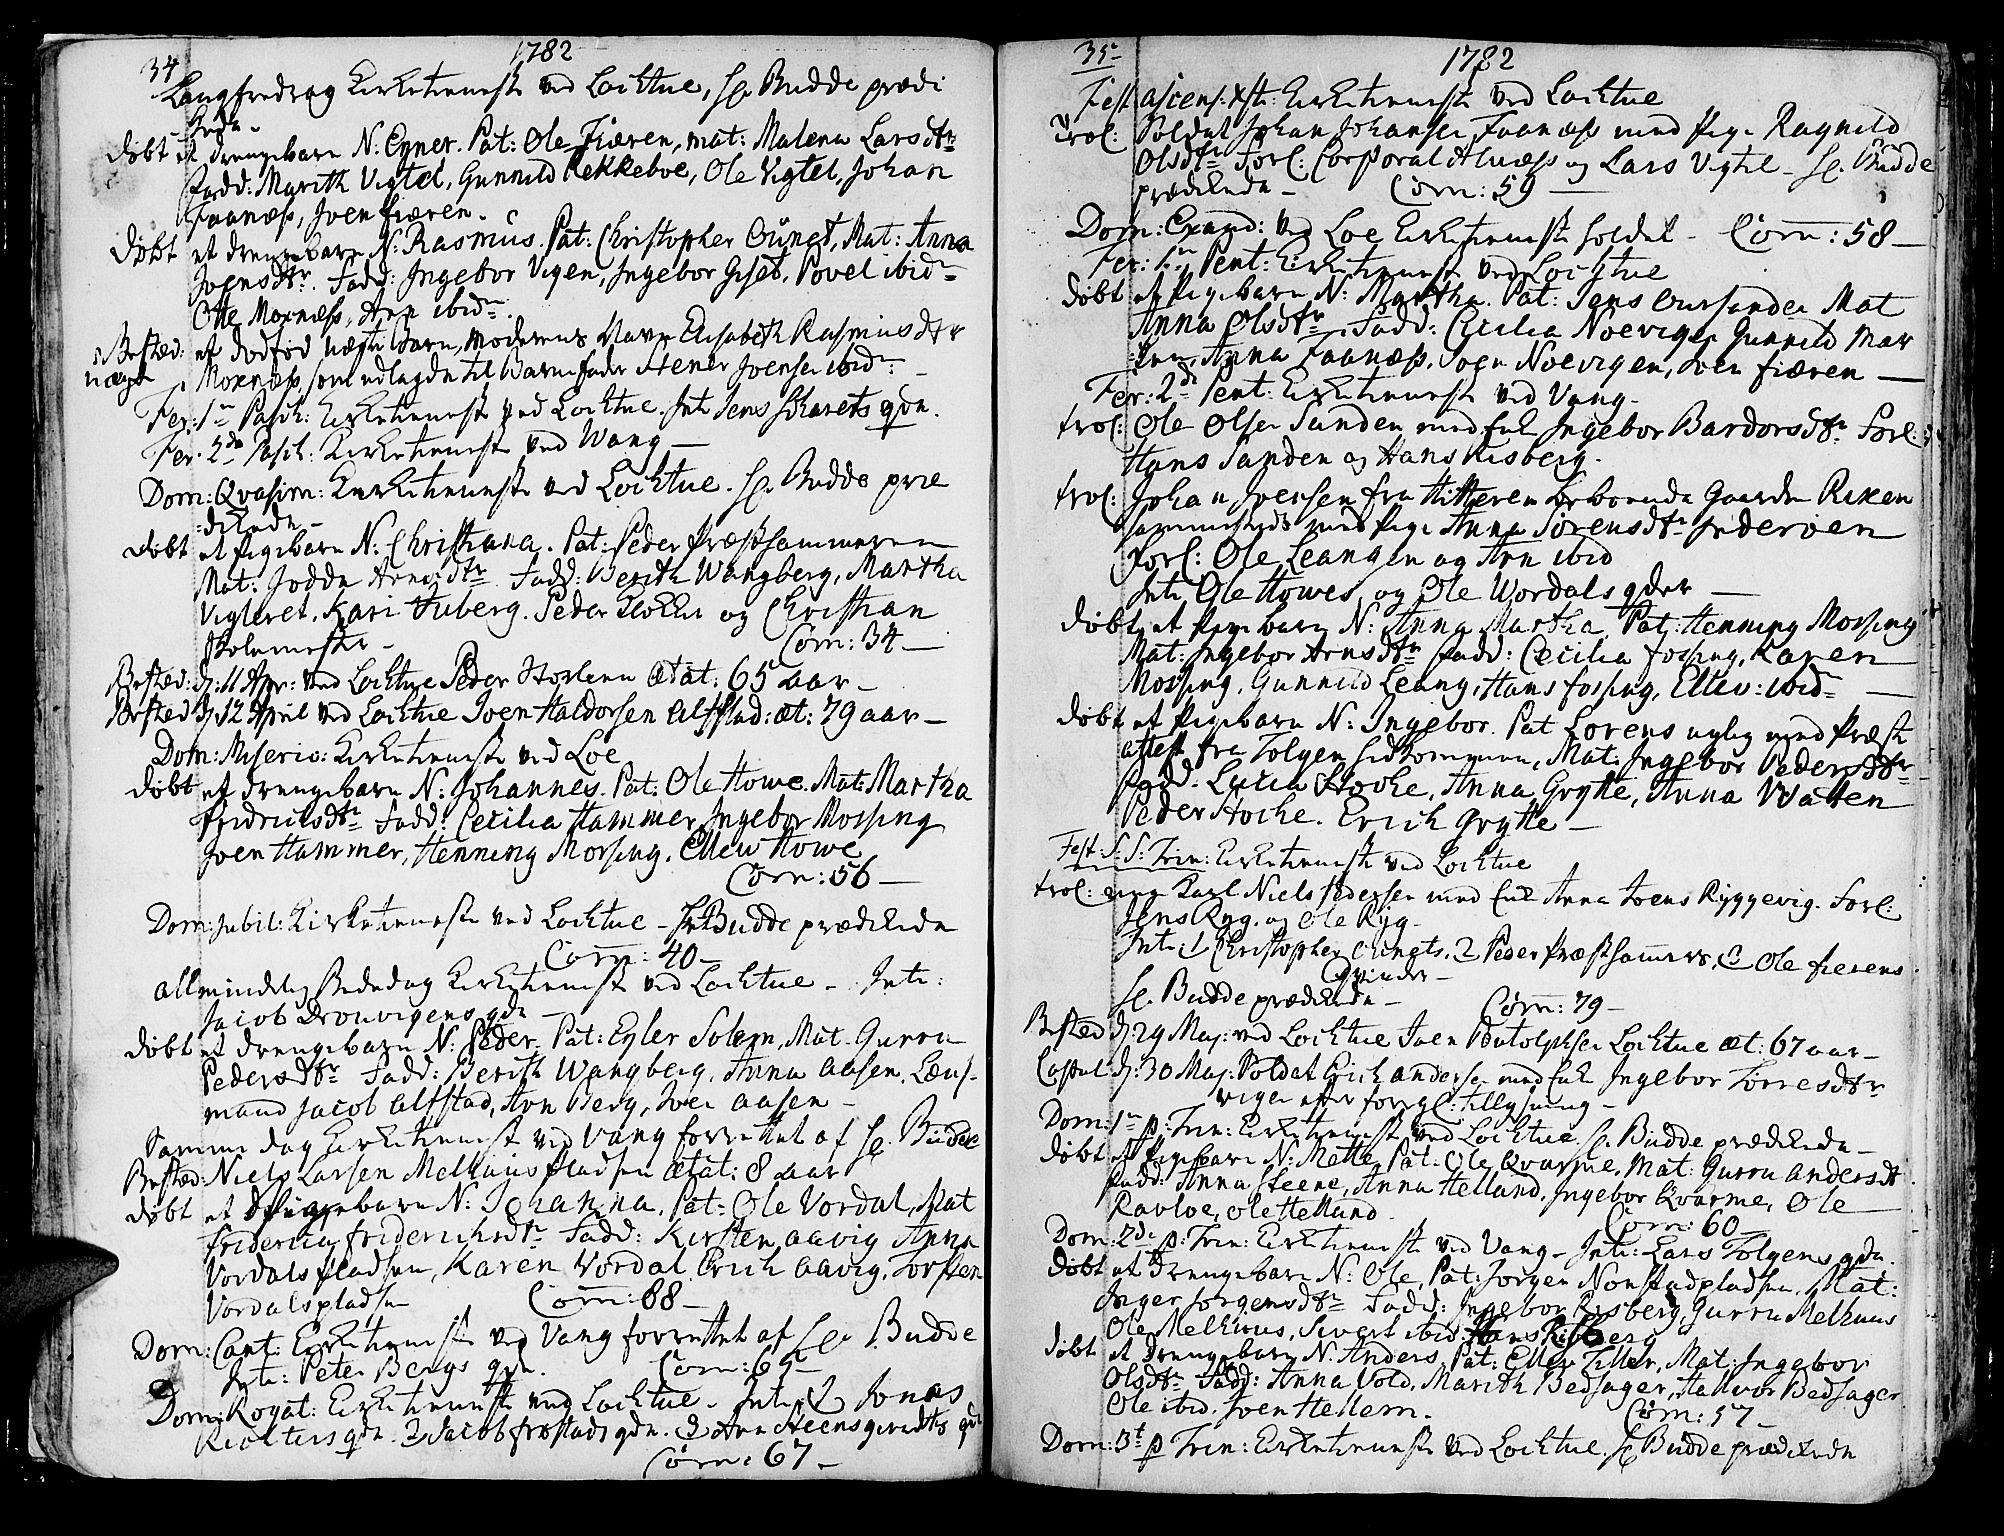 34 1782
Langfredag Kirketieneste ved Lochtue, Hr. Budde prædi
kede.
døbt et drengebarn N: Eyner. Pat: Ole Fiæren, mat: Malena Larsdtr
Fadd: Marith Vigtel, Gunnild Rekkeboe, Ole Vigtel, Johan
Faanæss, Joen fiæren.
døbt et drengebarn N: Rasmus. Pat: Christopher Mat: Anna
Joensdtr. Fadd: Ingebor Vigen, Ingebor Povel ibid
Otte Moxnæss, Arn ibid.
Bested: et dødfød uægte Barn, moderens Navn Elisabeth Rasmusdtr
uægte Moxnæss, som udlagde til Barnefader Joensen ibid:
Fer: 1 Pasch: Kirketieneste ved Lochtue. Int: Jens qde.
Fer. 2de Pasch: Kirketieneste ved Wang —
Dom: Qvasim: Kirketieneste ved Lochtue. Hr. Budde præ
dikede —
døbt et Pigebarn N: Christiana. Pat: Peder Præstsammeren
Mat: Arnesdtr Fadd: Berith Wangberg, Martha
Kari Huberg. Peder Klokker og Christian
skolemester — Com: 34 —
Bested: d: 11 Apr: ved Lochtue Peder ætat: 65 aar —
Bested d: 12 April ved Lochtue Joen Haldorsen Alfstad: æt: 79 aar —
Dom: Miseric: Kirketieneste ved Loe
døbt et drengebarn N: Johannes. Pat: Ole Howe. Mat: Martha
Fridrichsdtr Fadd: Cecilia Hammer, Ingebor Mossing
Joen Hammer, Henning Morsing. Ellew Howe
Com: 56 —
Dom: Jubil: Kirketieneste ved Lochtue — Hr. Budde prædikede
Com: 40 —
allmindelig Bededag Kirketieneste ved Lochtue — Int:
Jacob Drouvigens qde
døbt et drengebarn N: Peder. Pat: Eyler Solem, Mat. Gurru
Pedersdtr Fadd: Berith Wangberg. Anna Aasen. Læns-
mand Jacob Alfstad, Arn Berg, Iver Aasen —
Samme dag Kirketieneste ved Vang forrettet af Hr. Budde
Bested: Niels Larsen Melhuus pladsen ætat: 8 aar
døbt et Pigebarn N: Johanna. Pat: Ole Vordal, Mat
Fridericha friderichsdtr Fadd: Kirsten Aavig Anna
Vordals pladsen, Karen Vordal Erich Aavig. Torsten
Vordalspladsen Com: 88 —
Dom: Cant: Kirketieneste ved Vang forrettet af Hr. Budde
Int: Peter Bergs qde. Com: 65 —
Dom: Rogat: Kirketieneste ved Lochtue. Int: 1 Jonas
qde. 2 Jacob frøstads qde. 3 Arn qde
Com: 67 —
35 1782
Fest ascens: Xsti: Kirketieneste ved Lochtue
trol: Soldat Johan Johansen Faanæss med Pige Ragnild
Olsdtr Forl: Corporal og Lars Vigtil — Hr. Budde
prædikede — Com: 59 —
Dom: Exaud: ved Loe Kirketieneste holdet — Com: 58 —
Fer: 1 Pent: Kirketieneste ved Lochtue
døbt et Pigebarn N: Martha. Pat: Jens Mat
Anna Olsdtr. Fadd: Cecilia Noevigen Gunnild Mar
Anna Faanæss, Joen Noevigen, Iver fiæren —
Fer: 2de Pent: Kirketieneste ved Vang —
trol: Ole Olsen Sanden med Enk Ingebor Bardorsdtr Forl:
Hans Sanden og Hans Risberg.
trol: Johan Joensen fra Hitteren beboende Gaarden
sammesteds med Pige Anna Sørensdtr Inderøen
Forl: Ole Leangen og Arn ibid
Int: Ole Howes, og Ole Wordals qder —
døbt et Pigebarn N: Anna Martha. Pat: Henning Mossing
Mat: Ingebor Arnsdtr Fadd: Cecilia fossing, Karen
Mossing, Gunnild Leang, Hans fossing, Ellev: ibid —
døbt et Pigebarn N: Ingebor. Pat Lorens med Præste
attest fra Tolgen hidkommen, Mat: Ingebor Pedersdtr
Fadd. Lucia Hocke, Anna Grytte, Anna Watten
Peder Hocke. Erich Grytte —
Fest: S: S: Trin: Kirketieneste ved Lochtue
trol: ung Karl Niels Pedersen med Enk Anna Joens Ryggevig. Forl:
Jens Ryg. og Ole Ryg.
Int: 1 Christopher 2 Peder Præstsamers, 3 Ole fierens
Qvinder —
Hr. Budde prædikede — Com: 79 —
Bested d: 29 Maj: ved Lochtue Joen Lochtue æt: 67 aar —
Copul d: 30 Maj: Soldat Erich Andersen med Enk Ingebor Torresdtr
vigen efter foregl: tillysning —
Dom: 1 p: Trin: Kirketieneste ved Lochtue Hr. Budde prædikede —
døbt et Pigebarn N: Mette. Pat: Ole Qvarme. Mat: Gurru Andersdt
Fadd: Anna Steene, Anna Helland, Ingebor Qvarme, Ole
Ravloe, Ole Helland Com: 60 —
Dom: 2de p: Trin: Kirketieneste ved Vang — Int: Lars Tolgens qde.
døbt et drengebarn N: Ole, Pat: Jørgen Nonstadpladsen, Mat:
Inger Jørgensdtr Fadd: Ingebor Risberg Gurru Melhuus
Ole Melhuus, Sivert ibid Hans Risberg
døbt et drengebarn N: Anders, Pat: Eller Tiller, Mat: Ingebor
Olsdtr Fadd: Anna Vold, Marith Bedsager, Halvor Bedsager
Ole ibid. Joen Hellem. Com: 57 —
Dom: 3t p Trin: Kirketieneste ved Lochtue. Hr. Budde prædikede